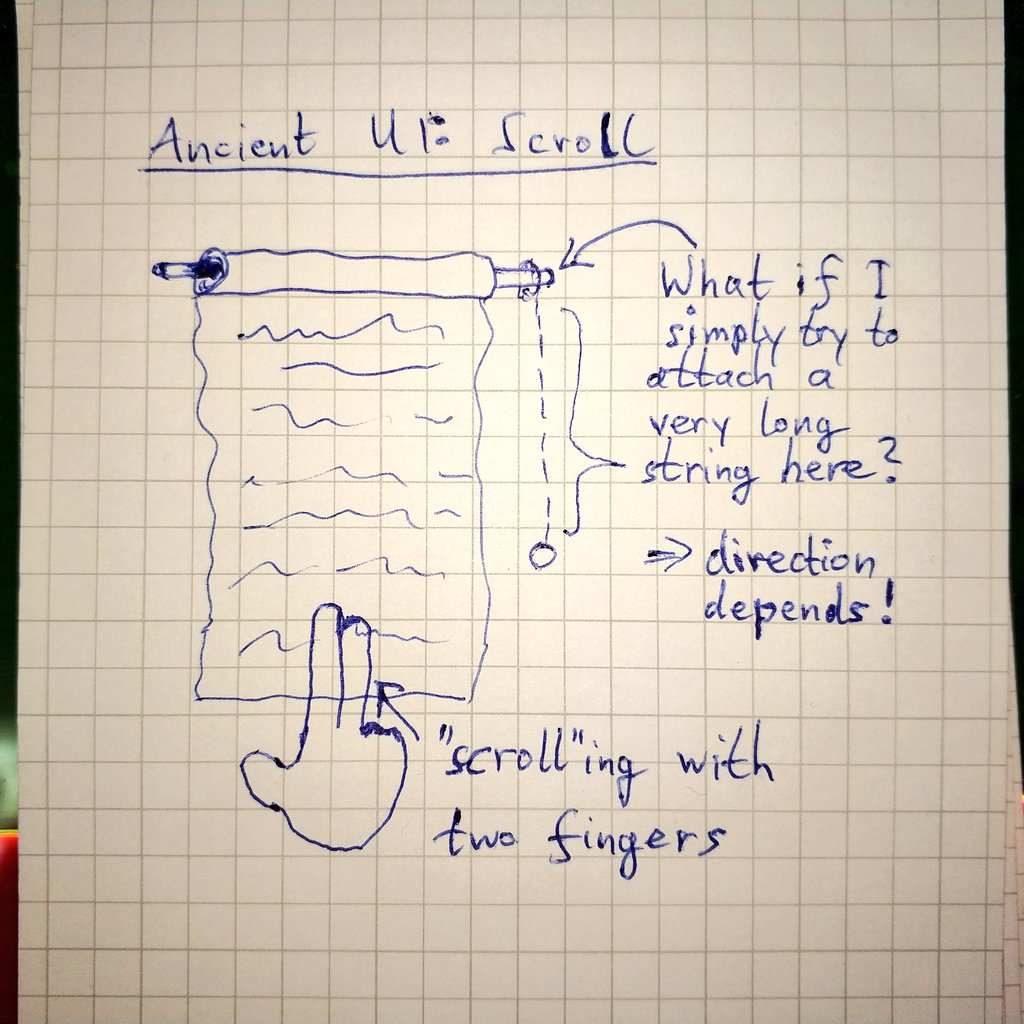 Ancient UI: Scroll
What if I
simply try to
attach a
very long
string here?
⇒ direction
depends!
"scroll"ing with
two fingers